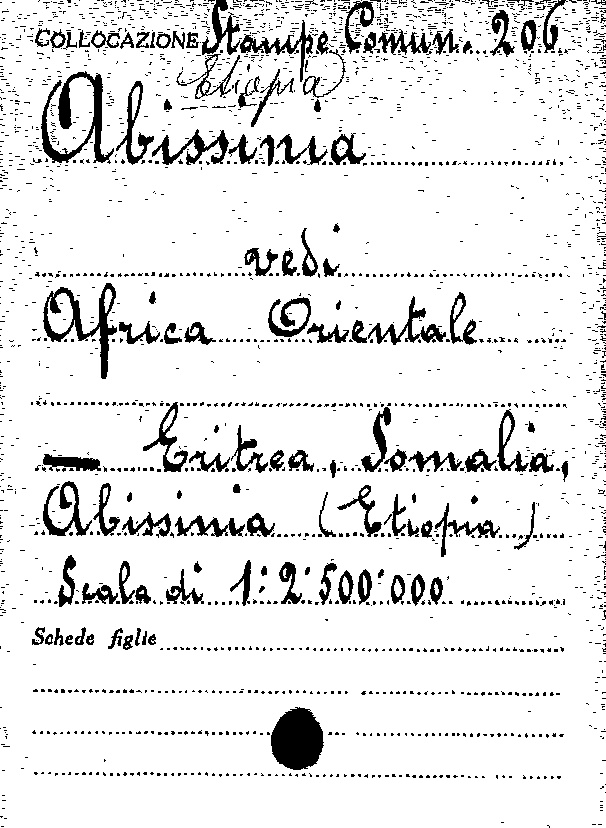 COLLOCAZIONE Stampe Comun. 206
Etiopia
Abissinia
vedi
Africa Orientale
— Eritrea, Somalia,
Abissinia (Etiopia)
Scala di 1:2'500'000
Schede figlie